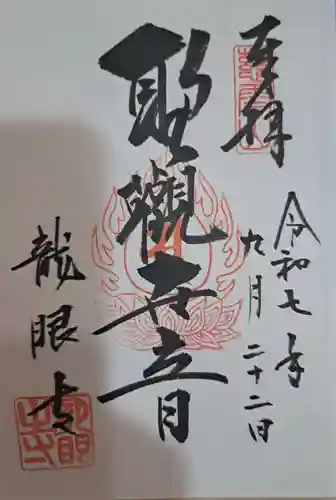 奉拝
令和七年
九月二十二日
聖觀世音
龍眼寺